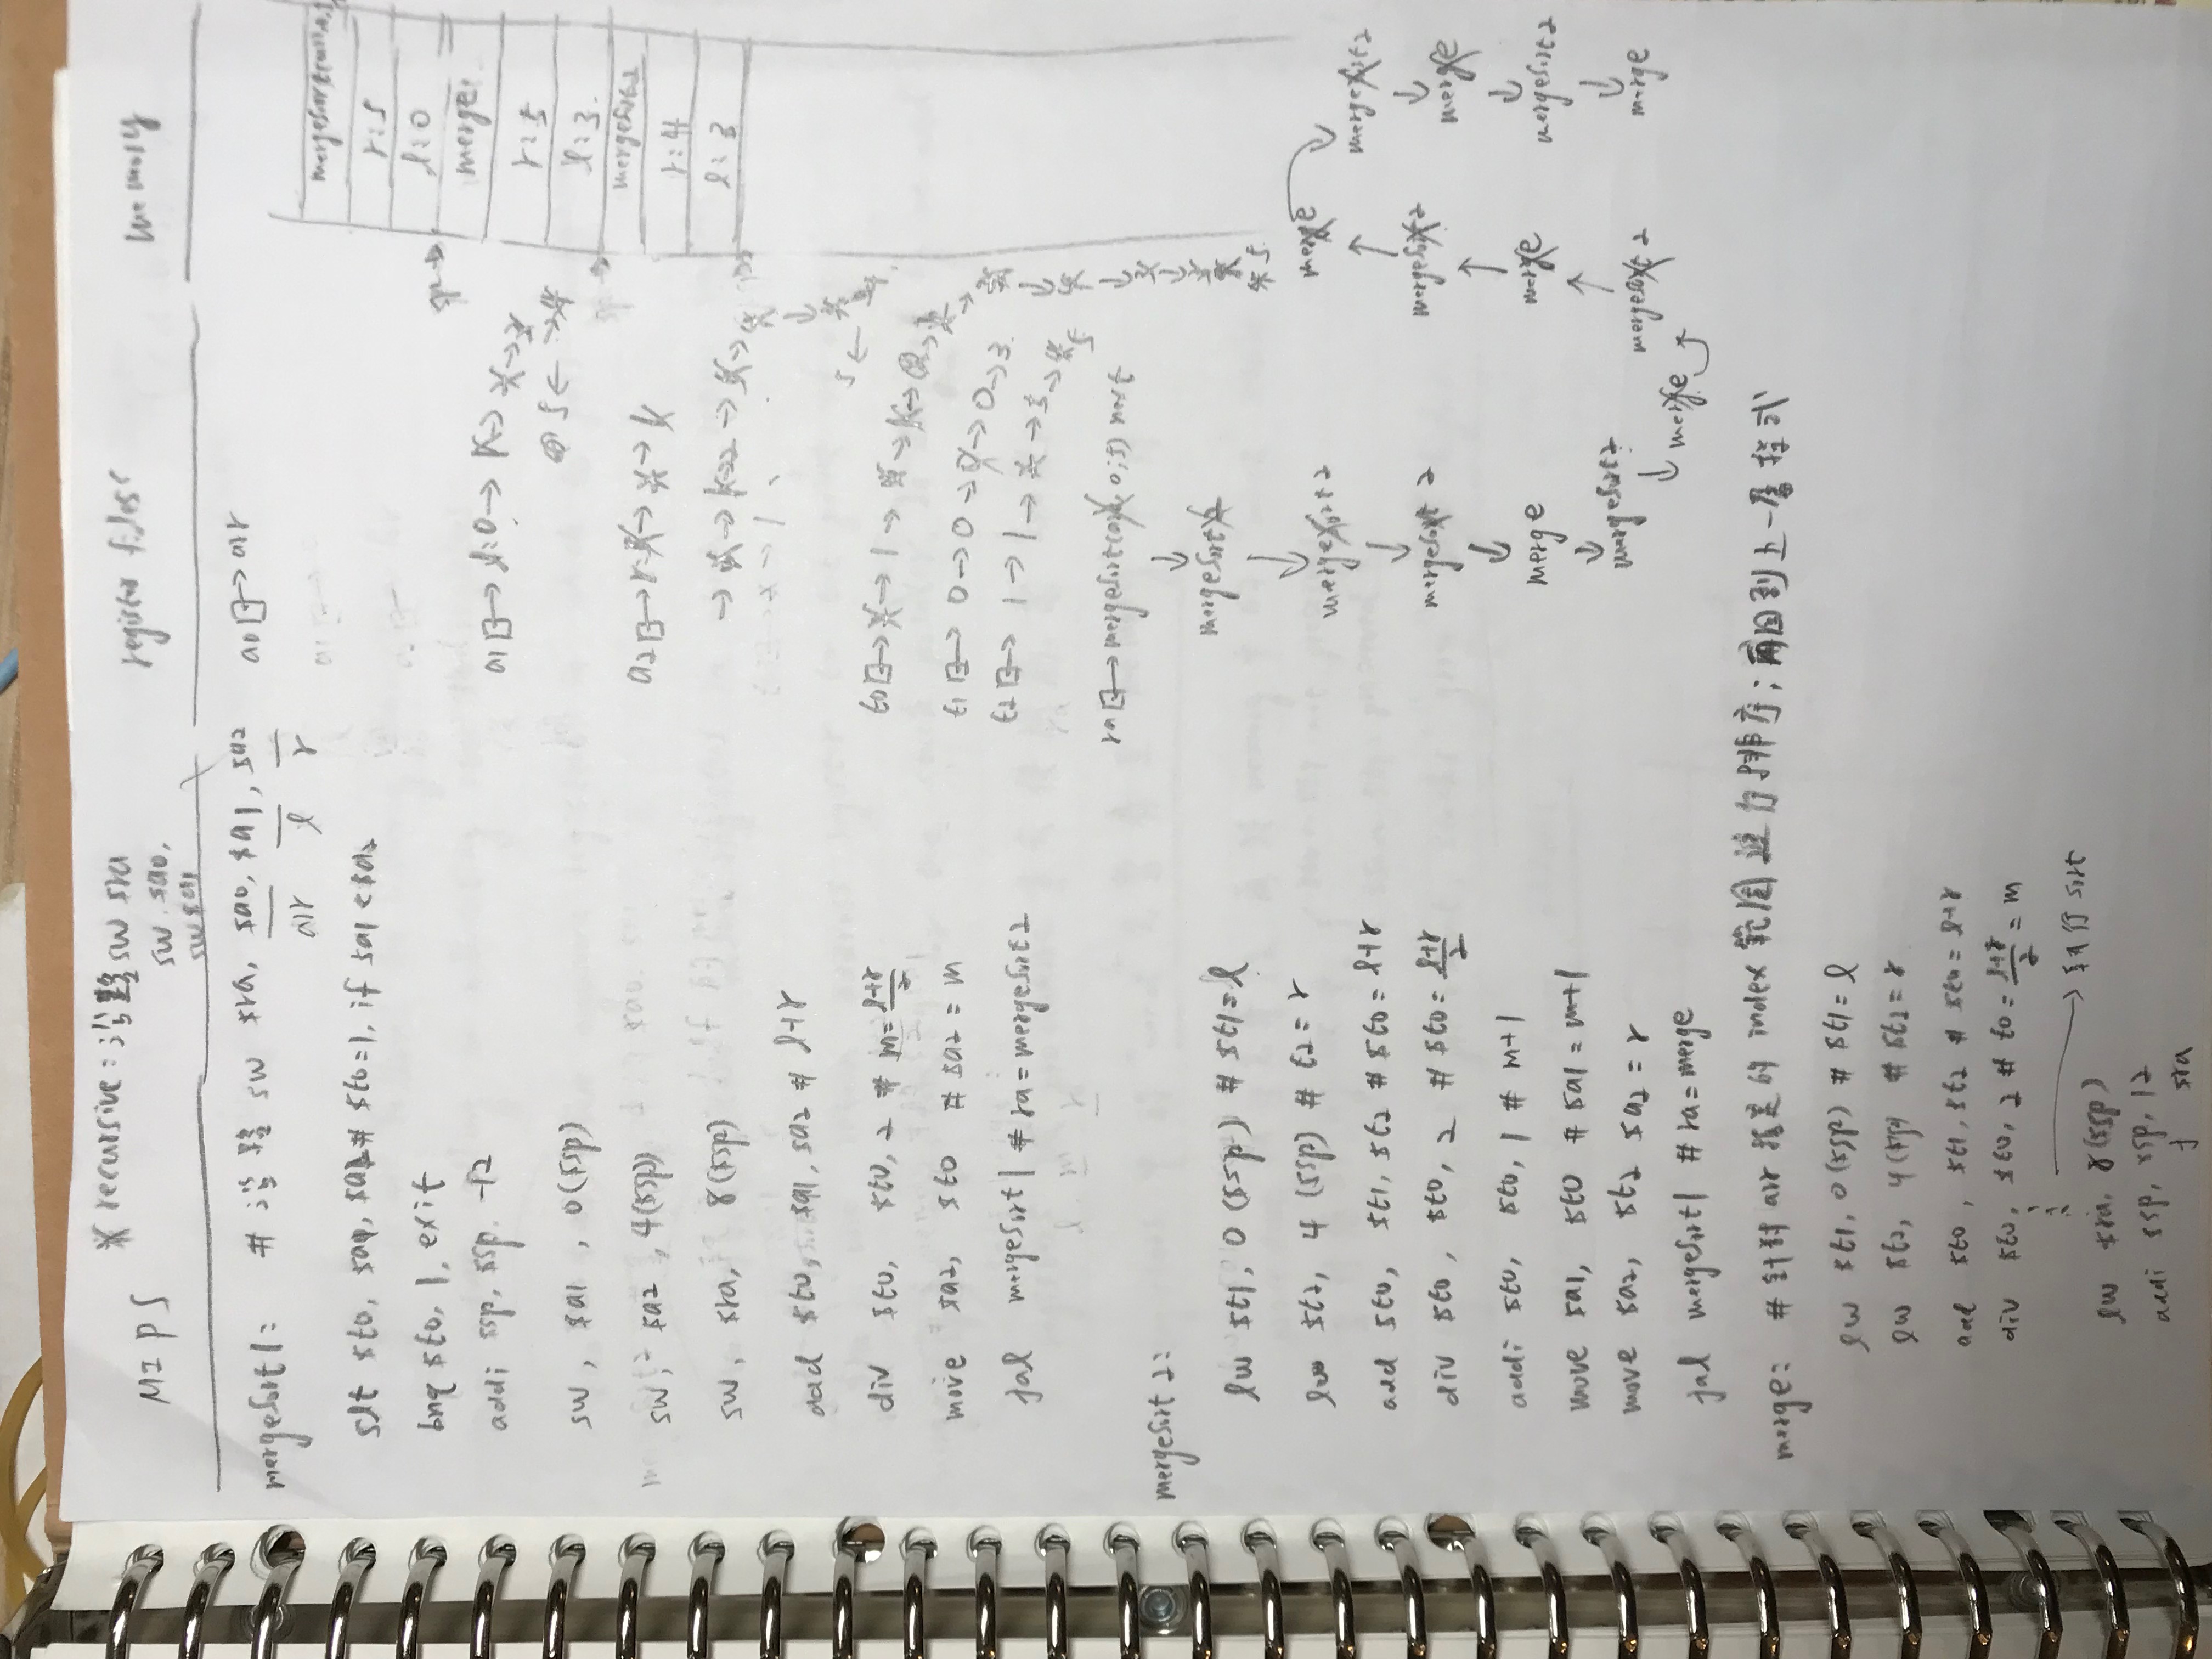 MIPS
* recursive: 沿路 sw $ra
sw $a0,
sw $a1
register files
memory
mergesort1: # 沿路 sw $ra, $a0, $a1, $a2
arr l r
slt $t0, $a1, $a2 # $t0=1, if $a1 < $a2
bnq $t0, 1, exit
addi $sp, $sp, -12
sw, $a1, 0($sp)
sw, $a2, 4($sp)
sw, $ra, 8($sp)
add $t0, $a1, $a2 # l+r
div $t0, $t0, 2 # m = l+r/2
move $a2, $t0 # $a2 = m
jal mergesort1 # ra = mergesort2
mergesort2:
lw $t1, 0($sp) # $t1 = l
lw $t2, 4($sp) # t2 = r
add $t0, $t1, $t2 # $t0 = l+r
div $t0, $t0, 2 # $t0 = l+r/2
addi $t0, $t0, 1 # m+1
move $a1, $t0 # $a1 = m+1
move $a2, $t2 $a2 = r
jal mergesort1 # ra = merge
merge: # 針對 arr 指定的 index 範圍進行排序; 再回到上一層指令
lw $t1, 0($sp) # $t1 = l
lw $t2, 4($sp) # $t2 = r
add $t0, $t1, $t2 # $t0 = l+r
div $t0, $t0, 2 # t0 = l+r/2 = m
→ 執行 sort
lw $ra, 8($sp)
addi $sp, $sp, 12
j $ra
a0 → arr
a1 → l:0 →
→ 5
a2 → r:
→ 2 →
→ 5
t0 → → 1 →
t1 → 0 → 0 → 0 → 0 → 3
t2 → 1 → 1 → → 3 → 5
ra → mergesort(arr, 0, 5) next
↓
mergesort2
↓
mergesort2
↓
mergesort2
↓
merge
↓
mergesort2
↓ merge
mergesort2
↑
merge
↑
mergesort2
↑
merge
mergesort2
↓
merge
↓
mergesort2
↓
merge
r:5
l:0
sp →
merge
r:5
l:3
sp →
mergesort2
r:4
l:3